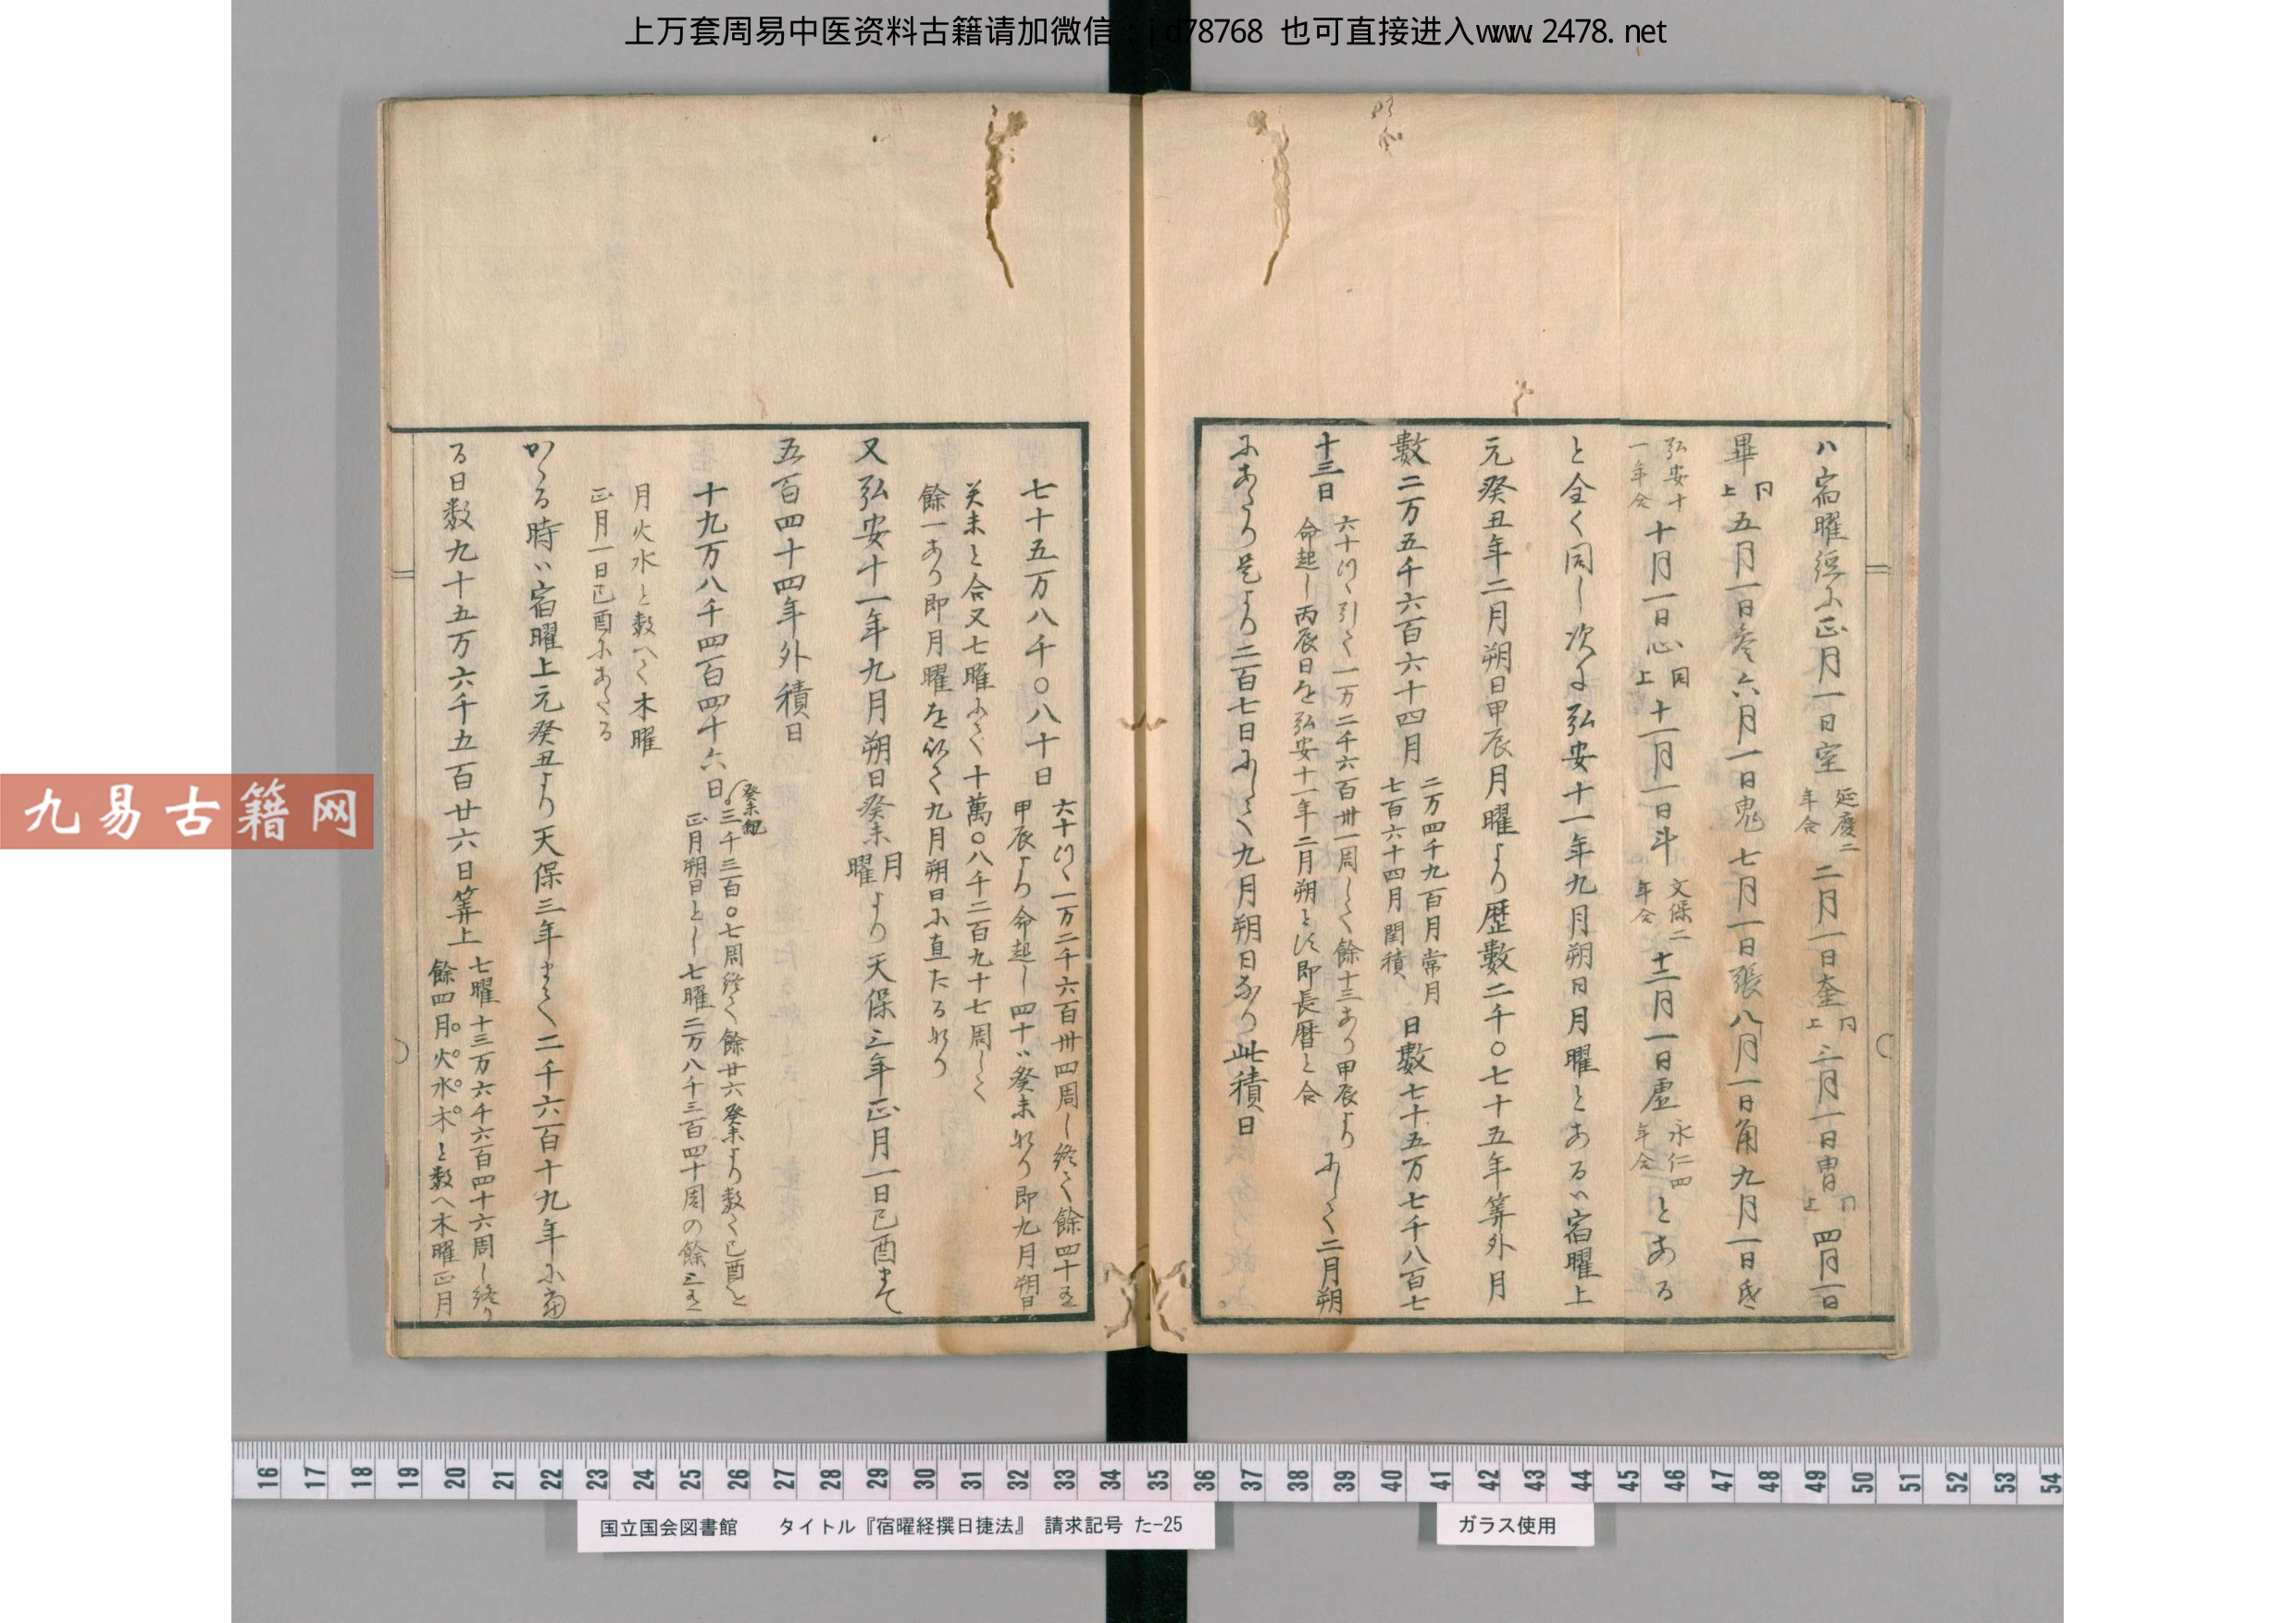 上万套周易中医资料古籍请加微信：jd78768 也可直接进入www.2478.net
ハ宿曜經ニ正月一日室 延慶二年合 二月一日奎 同上 三月一日胃 同上 四月一日
畢 同上 五月一日参六月一日鬼七月一日張八月一日角九月一日氐
弘安十一年合 十月一日心 同上 十一月一日斗 文保二年合 十二月一日虚 永仁四年合 とある
と全く同し次に弘安十一年九月朔日月曜とあるハ宿曜上
元癸丑年二月朔日甲辰月曜より歴數二千〇七十五年筭外月
數二万五千六百六十四月 二万四千九百月常月 七百六十四月閏積 日數七十五万七千八百七
十三日 六十除て引て一万二千六百卅一周して餘十三あり甲辰より 命起し丙辰日を弘安十一年二月朔と是即長暦と合 にして二月朔
にあたり是より二百七日にして九月朔日なり此積日
七十五万八千〇八十日 六十除て一万二千六百卅四周し終て餘四十を 甲辰より命起し四十ハ癸未なり即九月朔日
癸未と合又七曜にて十萬〇八千二百九十七周して
餘一あり即月曜を以て九月朔日に直たるなり
又弘安十一年九月朔日癸未月曜より天保三年正月一日己酉まて
五百四十四年外積日
十九万八千四百四十六日 癸未紀 三千三百〇七周終て餘廿六癸未より数て己酉と 正月朔日とし七曜二万八千三百四十周の餘三を
月火水と数へて木曜
正月一日己酉にあたる
かゝる時ハ宿曜上元癸丑より天保三年まて二千六百十九年に當
る日数九十五万六千五百廿六日筭上 七曜十三万六千六百四十六周し終り 餘四月火水木と数へ木曜正月
九易古籍网
16 17 18 19 20 21 22 23 24 25 26 27 28 29 30 31 32 33 34 35 36 37 38 39 40 41 42 43 44 45 46 47 48 49 50 51 52 53 54
国立国会図書館 タイトル『宿曜経撰日捷法』 請求記号 た-25
ガラス使用